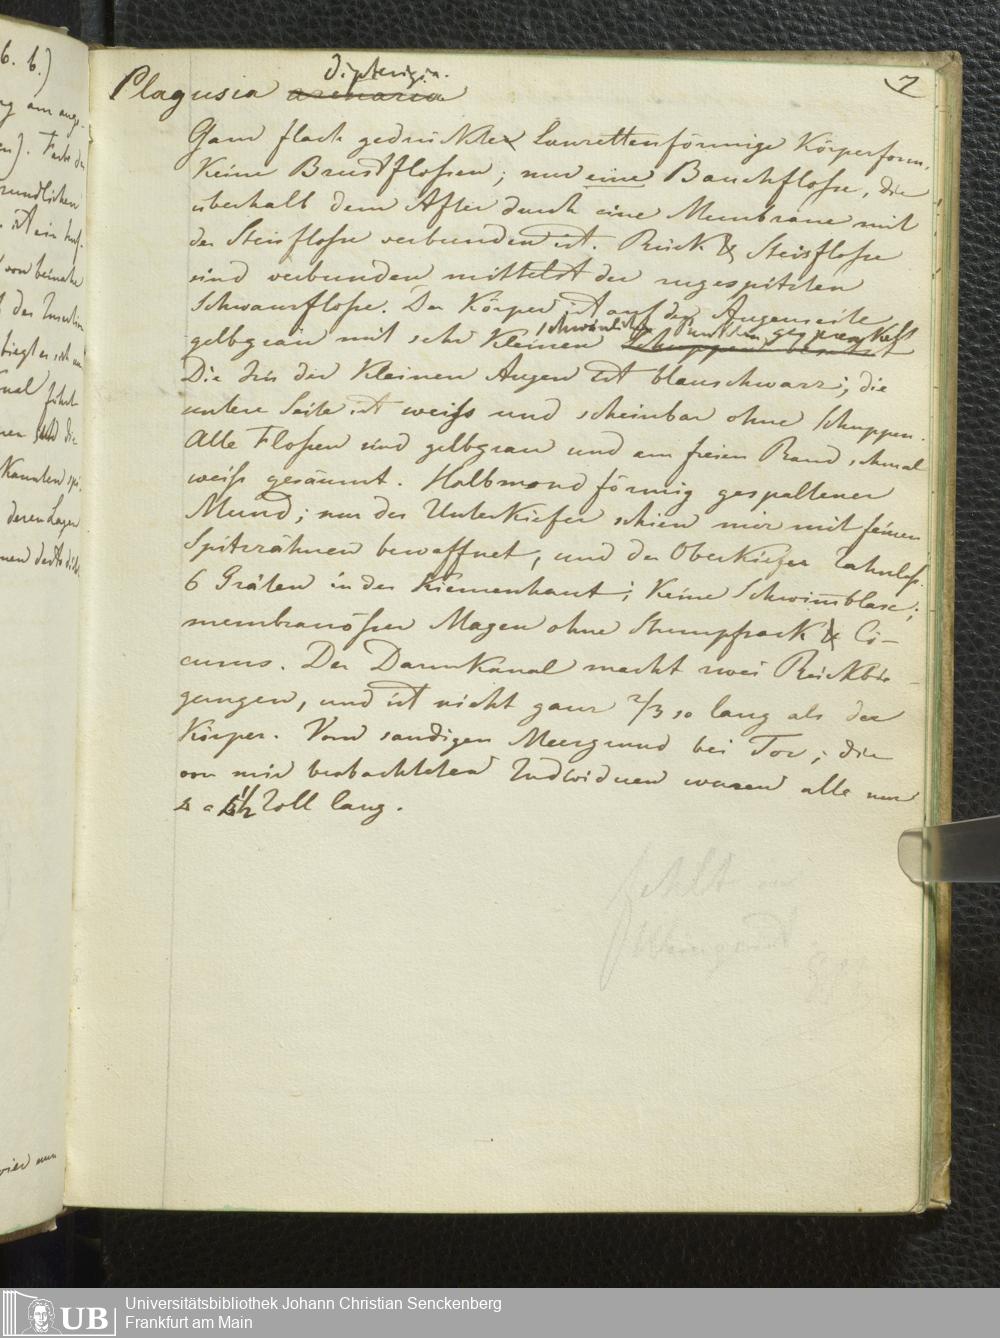 7
dipterigia.
Plagusia arenaria
Ganz flach gedrückte lanzettenförmige Körperform,
Keine Brustflossen; nur eine Bauchflosse, die
überhalb dem After durch eine Membrane mit
der Steisflosse verbunden ist. Rück & Steisflosse
sind verbunden mittelst der zugespitzten
Schwanzflosse. Der Körper ist auf der Augenseite
schwärzlichen Punkten gesprenkelt
gelbgrau mit sehr Kleinen Schuppen besetzt
Die Iris der Kleinen Augen ist blauschwarz; die
untere Seite ist weiss und scheinbar ohne Schuppen.
Alle Flossen sind gelbgrau und am freien Rand schmal
weiss gesäumt. Halbmondförmig gespaltener
Mund; nur der Unterkiefer schien mir mit feinen
Spitzzähnen bewaffnet, und der Oberkiefer Zahnlos.
6 Gräten in der Kiemenhaut; Keine Schwimblase;
membranöser Magen ohne Stumpfsack & Cö-
cums. Der Darmkanal macht zwei Rückbie-
gungen, und ist nicht ganz 2/3 so lang als der
Körper. Vom sandigen Meergrund bei Tor; die
von mir beobachteten Individuen waren alle nur
4 a 4 1/2 Zoll lang.
fehlt im
Universitätsbibliothek Johann Christian Senckenberg
Frankfurt am Main
UB